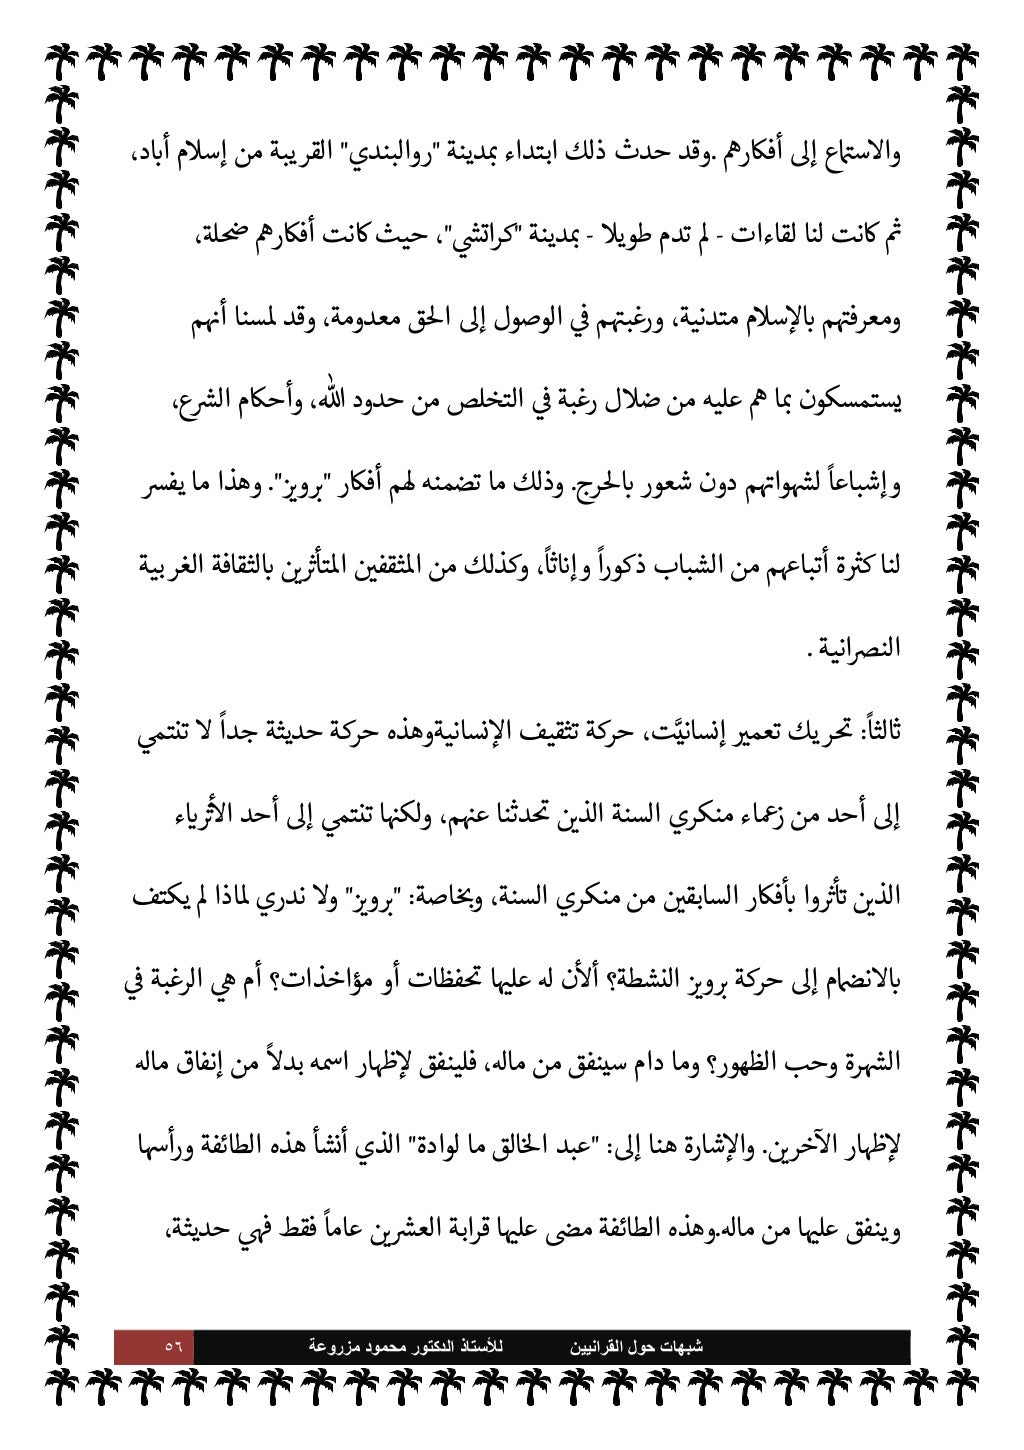 والاستماع إلى أفكارهم .وقد حدث ذلك ابتداء بمدينة "روالبندي" القريبة من إسلام أباد،
ثم كانت لنا لقاءات - لم تدم طويلا - بمدينة "كراتشي"، حيث كانت أفكارهم ضحلة،
ومعرفتهم بالإسلام متدنية، ورغبتهم في الوصول إلى الحق معدومة، وقد لمسنا أنهم
يستمسكون بما هم عليه من ضلال رغبة في التخلص من حدود الله، وأحكام الشرع،
وإشباعاً لشهواتهم دون شعور بالحرج. وذلك ما تضمنه لهم أفكار "برويز". وهذا ما يفسر
لنا كثرة أتباعهم من الشباب ذكوراً وإناثاً، وكذلك من المثقفين المتأثرين بالثقافة الغربية
النصرانية .
ثالثاً: تحريك تعمير إنسانيَّت، حركة تثقيف الإنسانيةوهذه حركة حديثة جداً لا تنتمي
إلى أحد من زعماء منكري السنة الذين تحدثنا عنهم، ولكنها تنتمي إلى أحد الأثرياء
الذين تأثروا بأفكار السابقين من منكري السنة، وبخاصة: "برويز" ولا ندري لماذا لم يكتف
بالانضمام إلى حركة برويز النشطة؟ ألأن له عليها تحفظات أو مؤاخذات؟ أم هي الرغبة في
الشهرة وحب الظهور؟ وما دام سينفق من ماله، فلينفق لإظهار اسمه بدلاً من إنفاق ماله
لإظهار الآخرين. والإشارة هنا إلى: "عبد الخالق ما لوادة" الذي أنشأ هذه الطائفة ورأسها
وينفق عليها من ماله.وهذه الطائفة مضى عليها قرابة العشرين عاماً فقط فهي حديثة،
شبهات حول القرانيين للأستاذ الدكتور محمود مزروعة ٥٦